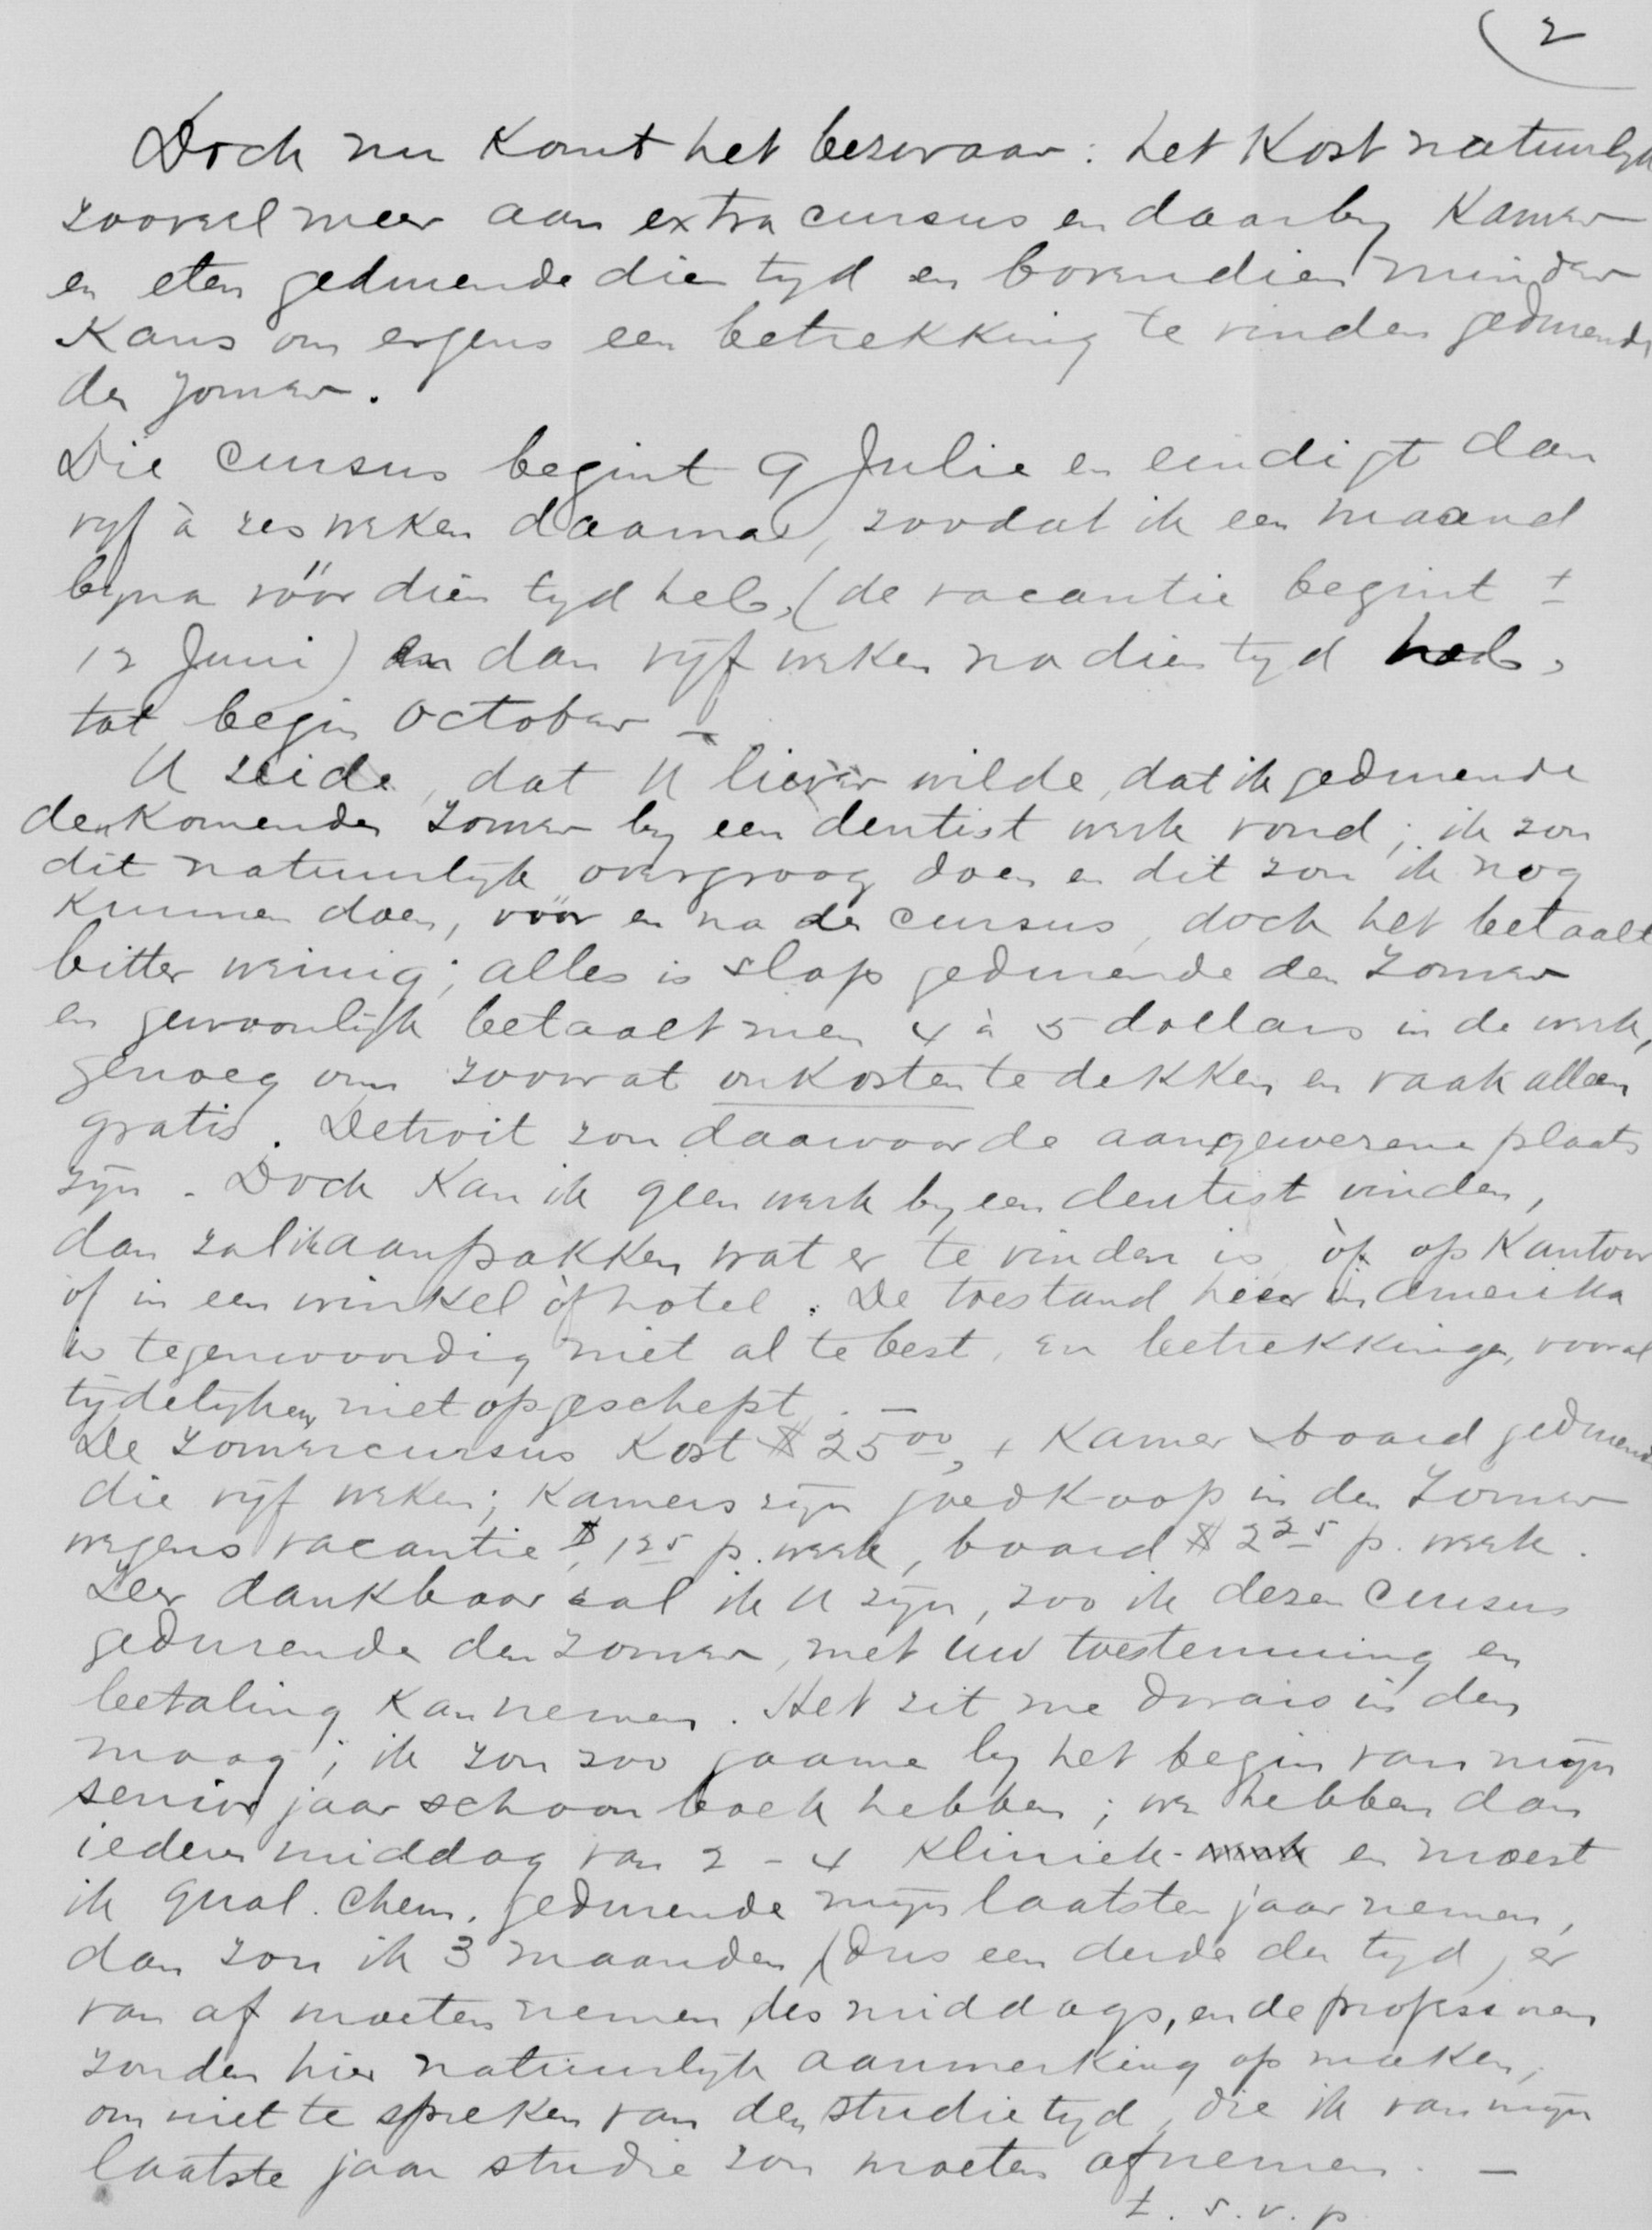 2
Doch nu komt het bezwaar: het kost natuurlyk
zooveel meer aan extra cursus en daarby kamer
en eten gedurende dien tyd en bovendien minder
kans om ergens een betrekking te vinden gedurende
den zomer.
Die cursus begint 9 Julie en eindigt dan
vyf à zes weken daarna, zoodat ik een maand
byna vóór dien tyd heb, (de vacantie begint ±
12 Juni) en dan vyf weken na dien tyd heb,
tot begin October –
U zeide, dat U liever wilde, dat ik gedurende
den komenden zomer by een dentist werk vond; ik zou
dit natuurlyk overgraag doen en dit zou ik nog
kunnen doen, vóór en na den cursus, doch het betaalt
bitter weinig; alles is slap gedurende den zomer
en gewoonlyk betaalt men 4 à 5 dollars in de week,
genoeg om zoowat onkosten te dekken en vaak alleen
gratis. Detroit zou daarvoor de aangewezene plaats
zyn. Doch kan ik geen werk by een dentist vinden,
dan zal ik aanpakken wat er te vinden is òf op kantoor
of in een winkel òf hotel. De toestand hier in Amerika
is tegenwoordig niet al te best, en betrekkingen, vooral
tydelyken, niet opgeschept. –
De zomercursus kost $ 25 00, + kamer & board gedurende
die vyf weken; kamers zyn goedkoop in den zomer
wegens vacantie $ 1 25 p. week, board $ 2 25 p. week.
Zeer dankbaar zal ik U zyn, zoo ik dezen cursus
gedurende den zomer, met uw toestemming en
betaling kan nemen. Het zit me dwars in den
maag; ik zou zoo gaarne by het begin van myn
senior jaar schoon boek hebben; we hebben dan
iederen middag van 2 – 4 kliniek- werk en moest
ik qual. chem. gedurende myn laatsten jaar nemen,
dan zou ik 3 maanden (dus een derde der tyd) er
van af moeten nemen des middags, en de professoren
zouden hier natuurlyk aanmerking op maken,
om niet te spreken van den studietyd, die ik van myn
laatste jaar studie zou moeten afnemen. –
z. s. v. p